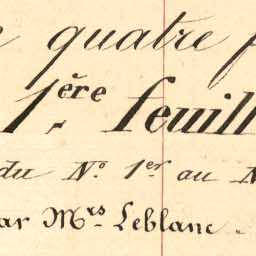 quatre
1ère feuill
du No 1er au N
ar Mrs Leblanc.